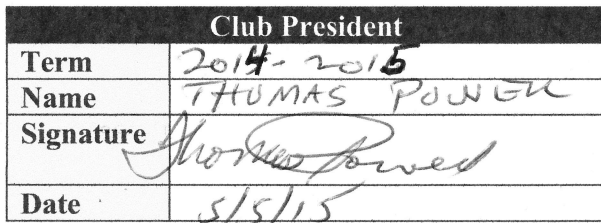 Club President
Term 2014-2015
Name THOMAS POWELL
Signature Thomas Powell
Date 5/5/15